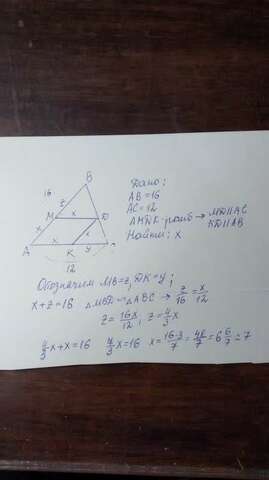 B
16
z
M
x
D
x
x
K
y
A
12
Дано:
AB=16
AC=12
AMDK-ромб → MD||AC
KD||AB
Найти: x
Обозначим MB=z, DK=y;
x+z=16 △MBD~△ABC → z/16 = x/12
z = 16x/12; z = 4/3 x
4/3 x + x = 16 7/3 x = 16 x = 16·3/7 = 48/7 = 6 6/7 ≈ 7